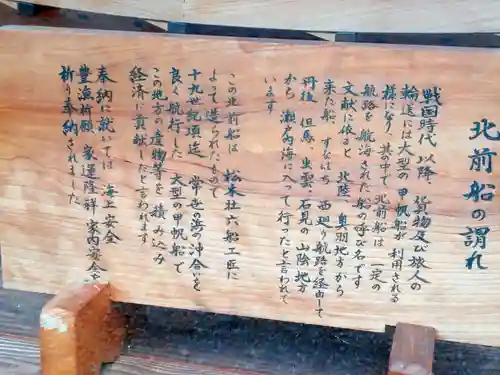 北前船の謂れ
戦国時代以降、貨物及び旅人の
輸送には大型の甲帆船が利用される
様になり、其の中で北前船は一定の
航路を航海された船の呼び名です
文献に依ると 北陸、奥羽地方から
来た船、すなはち 西廻り航路を経由して
丹後、但馬、出雲、石見の山陰地方
から瀬戸内海へ入って行ったと言われて
います
この北前船は、松本社六船工匠に
よって造られたもので
十九世紀頃迄 常世の宮の沖合いを
良く航行した 大型の甲帆船で
この地方の産物等を積み込み
経済に貢献したと言われます
奉納に就いては 海上安全
豊漁祈願 家運隆祥 家内安全を
祈り奉納されました。